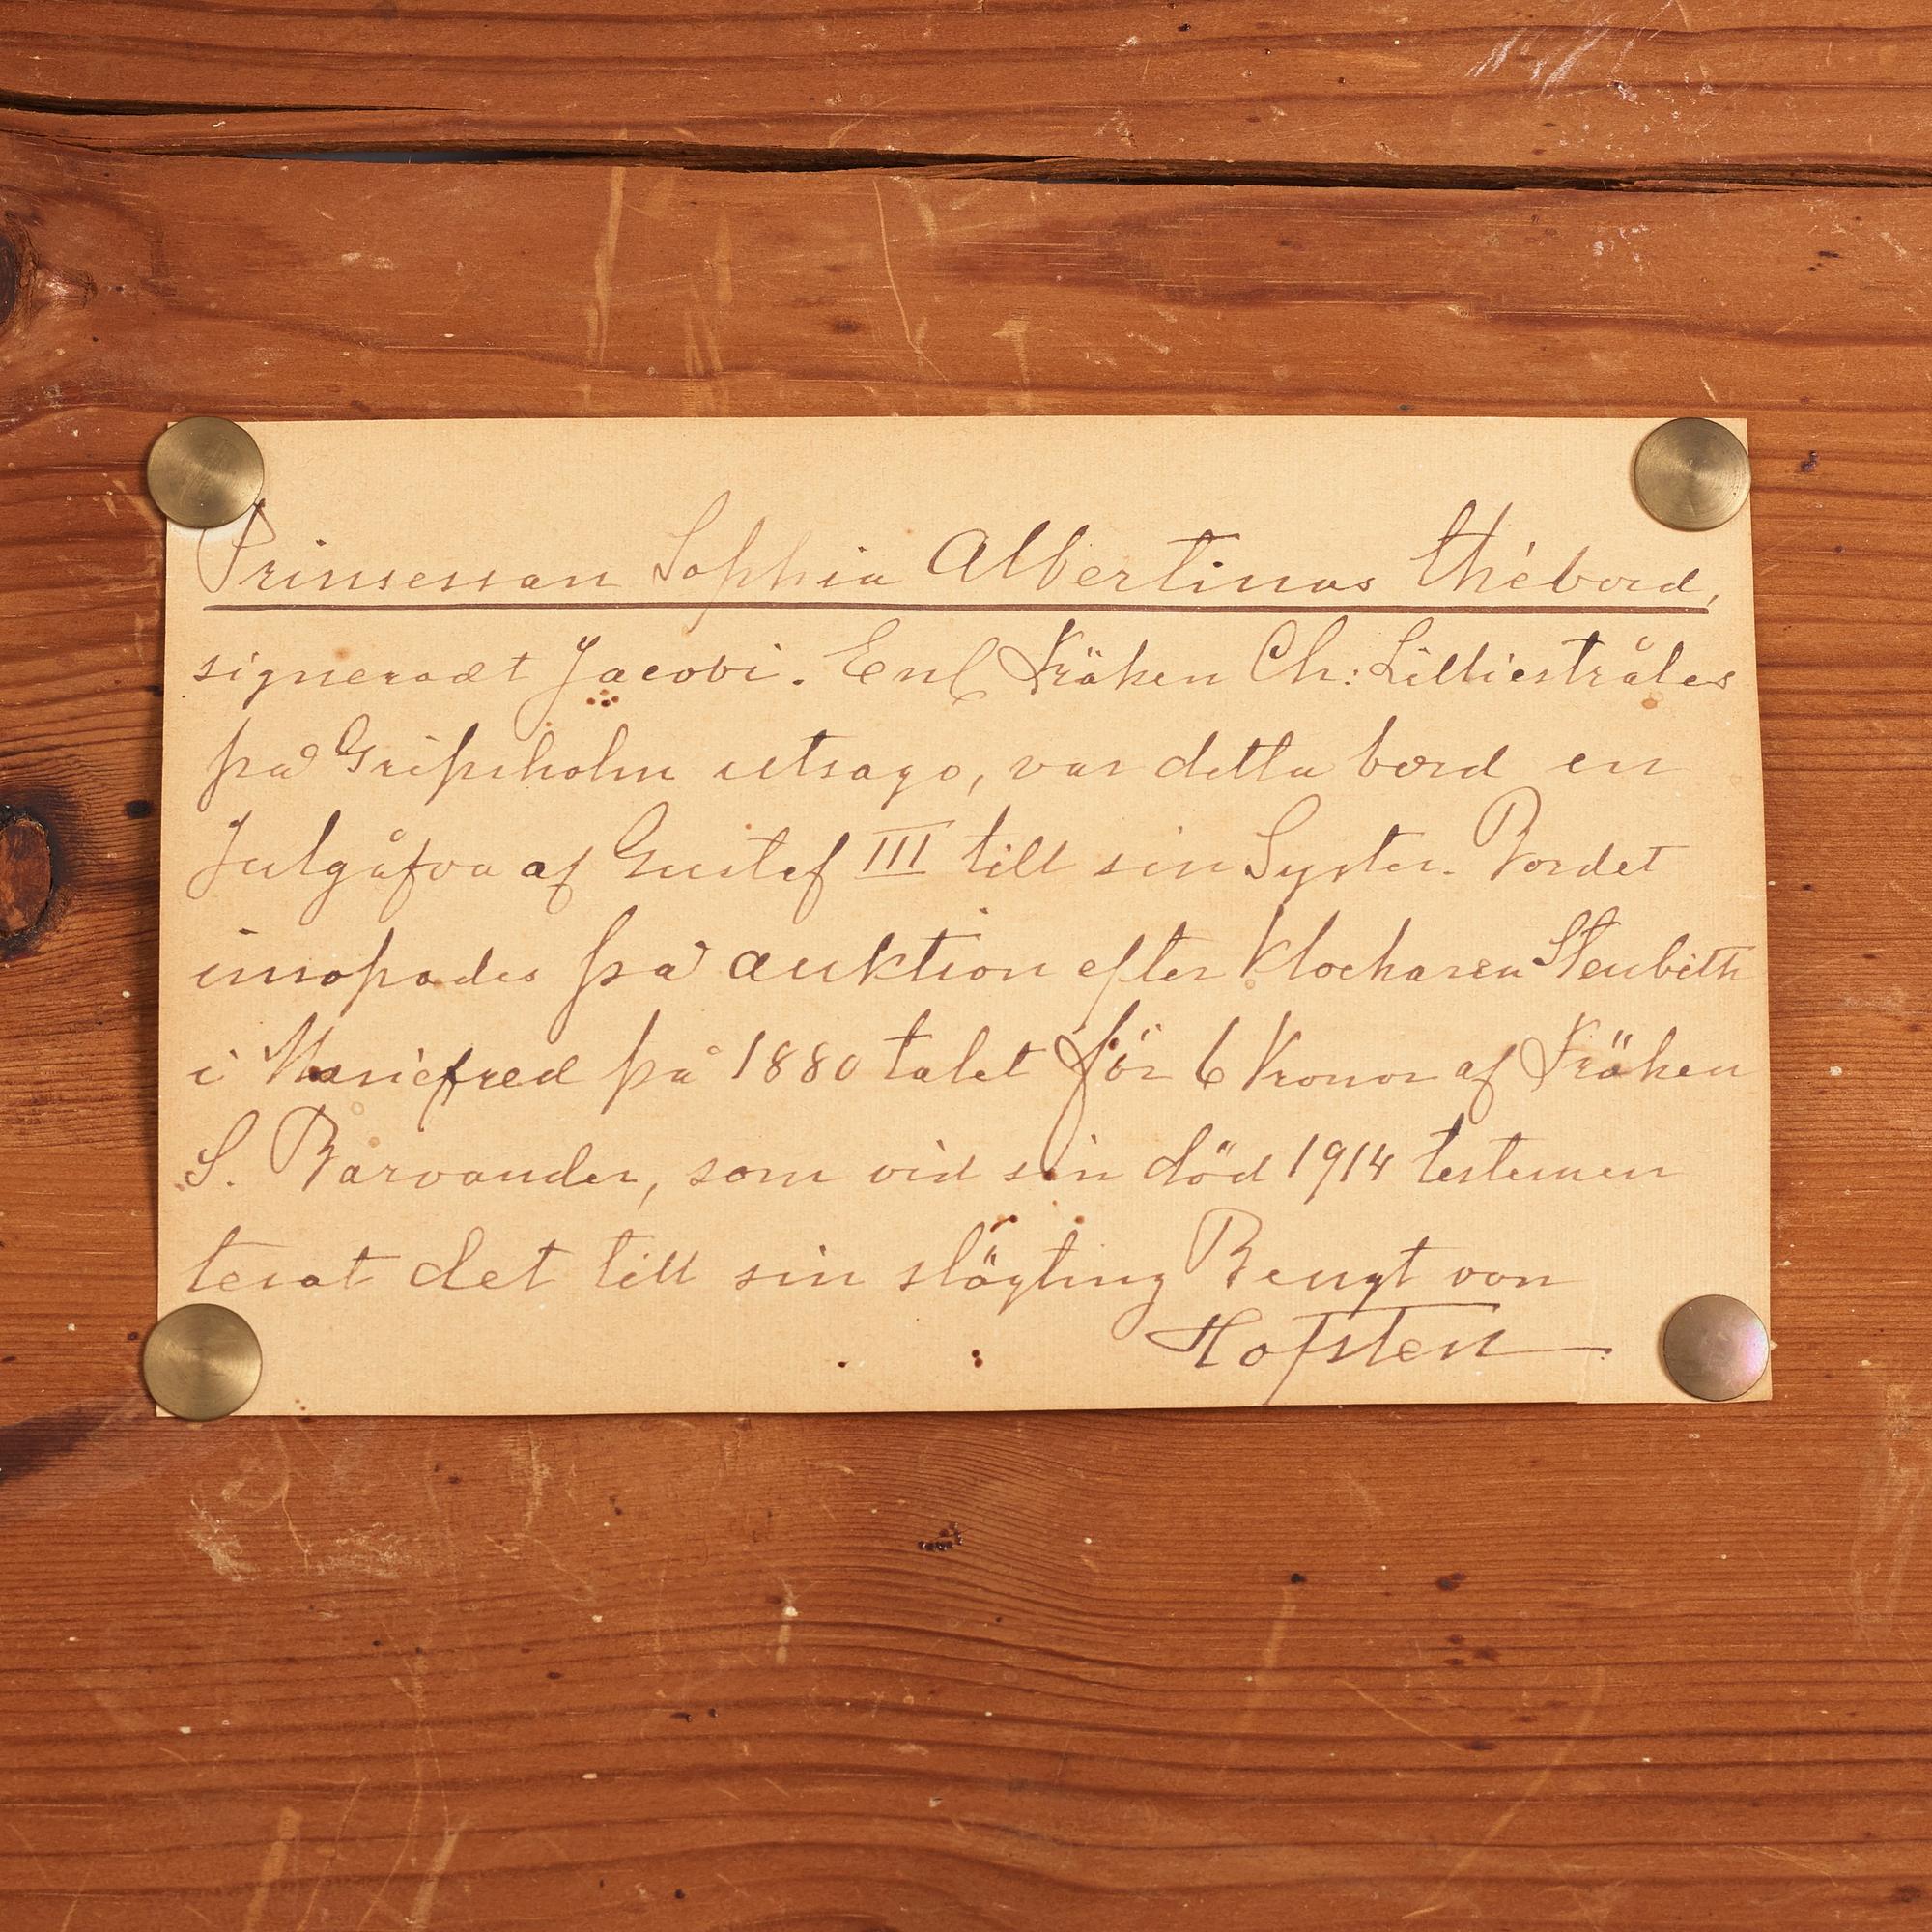 Prinsessan Sophia Albertinas thébord,
signeradt Jacobi. Enl Fröken Ch: Lilliestråles
på Gripsholm utsago, var detta bord en
Julgåfva af Gustaf III till sin Syster. Bordet
inropades på auktion efter Klockaren
i Mariefred på 1880 talet för 6 Kronor af Fröken
S. Barvander, som vid sin död 1914 testamen
terat det till sin slägting Bengt von
Hofsten